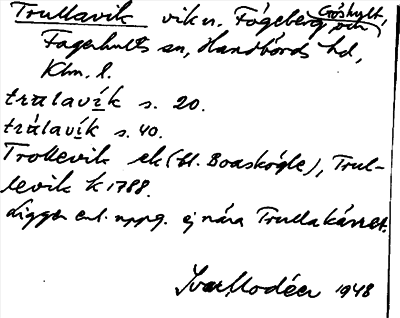 Trullavik vik n. Fågeberg och Gåshult,
Fagerhults sn, Handbörds hd,
Klm. l.
trulavík s. 20.
trúlavík s. 40.
Trollevik ek (bl. Boaskögle), Trul-
levik k 1788.
Ligger enl. uppg. ej nära Trullakärret.
Ivar Modéer 1948